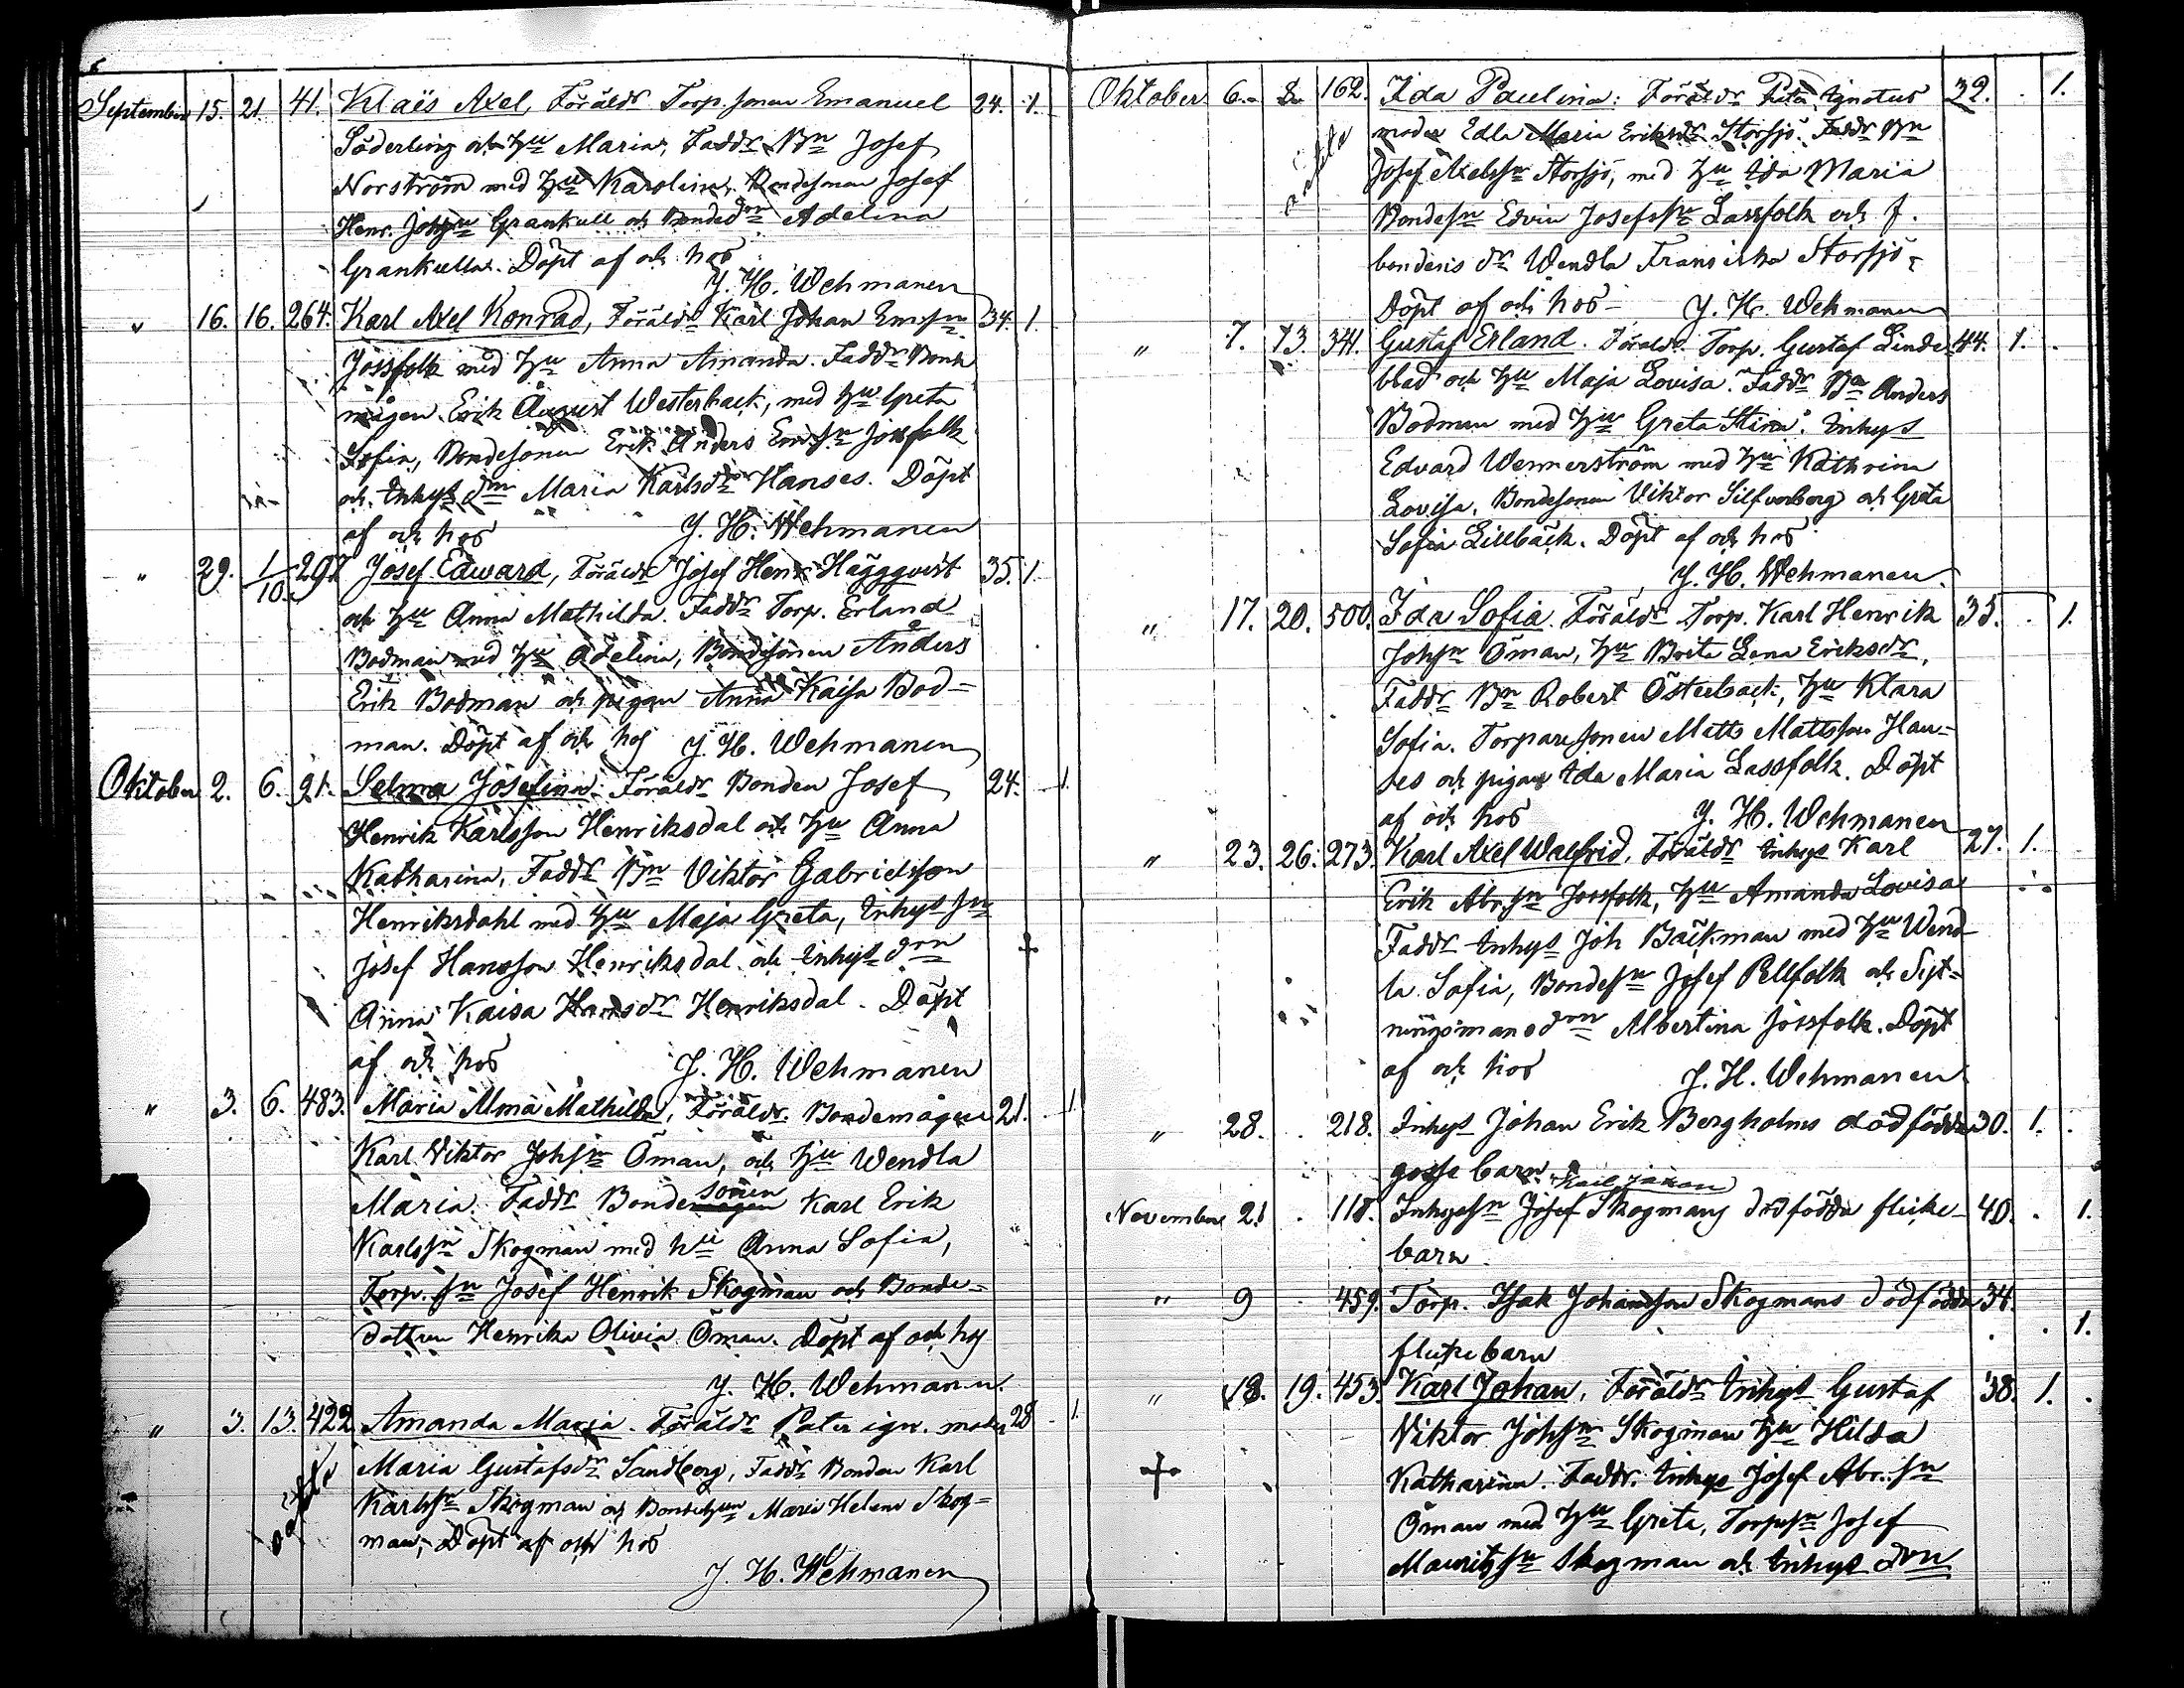 September 15. 21. 41. Klaës Axel, Föräldr Torp. sonen Emanuel 24. 1.
Söderling och hu Maria, Faddr Bn Josef
Norström med hu Karolina. Bondesonen Josef
Henr. Johssn Grankull och Bondedrn Adelina
Grankulla. Döpt af och hos
J. H. Wehmanen
" 16. 16. 264. Karl Axel Konrad, Föräldr Karl Johan Emssn 34. 1.
Jossfolk med hu Anna Amanda. Faddr Bonde
mågen Erik August Westerback, med hu Greta
Sofia, Bondesonen Erik Anders Emssn Jossfolk
och Inhys drn Maria Karlsdr Hanses. Döpt
af och hos J. H. Wehmanen
" 29. 1/10. 297 Josef Edward, Föräldr Josef Henr Häggqvist 35. 1.
och hu Anna Mathilda. Faddr Torp. Erland
Bodman med hu Adelina, Bondesonen Anders
Erik Bodman och pigan Anna Kaisa Bod-
man. Döpt af och hos J. H. Wehmanen
Oktober 2. 6. 91. Selma Josefina. Föräldr Bonden Josef 24. 1.
Henrik Karlsson Henriksdal och hu Anna
Katharina, Faddr Bn Viktor Gabrielsson
Henriksdahl med hu Maja Greta, Inhys sn
Josef Hansson Henriksdal och Inhys drn
Anna Kaisa Hansdr Henriksdal. Döpt
af och hos J. H. Wehmanen
" 3. 6. 483. Maria Alma Mathilda, Föräldr. Bondemågen 21. 1.
Karl Viktor Johssn Öman, och hu Wendla
Maria. Faddr Bondesonen Karl Erik
Karlssn Skogman med hu Anna Sofia,
Torp. sn Josef Henrik Skogman och Bonde-
dottren Henrika Olivia Öman. Döpt af och hos
J. H. Wehmanen.
" 3. 13. 422 Amanda Maria. Föräldr Pater ign. moder 28 1.
oäkta
Maria Gustafsdr Sandberg, Faddr Bonden Karl
Karlssn Skogman och Bondehun Maria Helena Skog-
man, Döpt af och hos
J. H. Wehmanen
Oktober 6. 8. 162. Ida Paulina: Föräldr Pater Ignotus 32. 1.
oäkta
moder Edla Maria Eriksdr Storsjö. Faddr Bn
Josef Axelssn Storsjö, med hu Ida Maria
Bondesn Edvin Josefssn Lassfolk och f.
bondens dr Wendla Fransiska Storsjö
Döpt af och hos - J. H. Wehmanen
" 7. 13. 341. Gustaf Erland. Föräldr. Torp. Gustaf Linde- 44. 1.
blad och hu Maja Lovisa. Faddr Bn Anders
Bodman med hu Greta Stina. Inhys
Edvard Wennerström med hu Kathrina
Lovisa. Bondesonen Viktor Silfverberg och Greta
Sofia Lillbäck. Döpt af och hos
J. H. Wehmanen.
" 17. 20. 500. Ida Sofia. Föräldr Torp. Karl Henrik 35. 1.
Johssn Öman, hu Brita Lena Eriksdr,
Faddr Bn Robert Österback, hu Klara
Sofia. Torparesonen Matts Mattsson Han-
ses och pigan Ida Maria Lassfolk. Döpt
af och hos J. H. Wehmanen
" 23. 26. 273. Karl Axel Walfrid, Föräldr Inhys Karl 27. 1.
Erik Abr.sn Jossfolk, hu Amanda Lovisa
Faddr Inhys Joh Backman med hu Wend-
la Sofia, Bondesn Josef Pellfolk och Syt-
ningsmansdrn Albertina Jossfolk. Döpt
af och hos
J. H. Wehmanen
" 28. 218. Inhys Johan Erik Bergholms dödfödda 30. 1.
gosse barn.
November 21 118. Inhysesn Josef Skogmans dödfödda flicke- 40. 1.
barn.
" 9 459. Torp. Isak Johansson Skogmans dödfödda 34.
flickebarn 1.
" 18. 19. 453. Karl Johan, Föräldr Inhys Gustaf 38. 1.
Viktor Johssn Skogman hu Hilda
Katharina. Faddr. Inhys Josef Abr. sn
Öman med hu Greta, Torpsn Josef
Mauritssn Skogman och Inhys drn